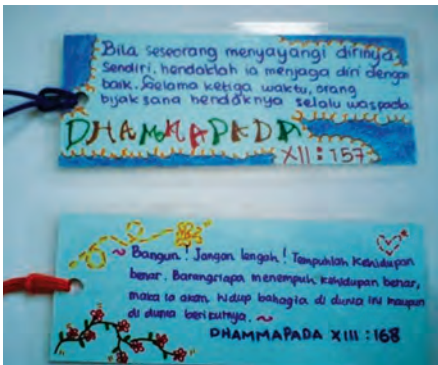 Bila seseorang menyayangi dirinya
sendiri, hendaklah ia menjaga diri dengan
baik. Selama ketiga waktu, orang
bijaksana hendaknya selalu waspada
DHAMMAPADA
XII : 157
Bangun! Jangan lengah! Tempuhlah kehidupan
benar. Barangsiapa menempuh kehidupan benar,
maka ia akan hidup bahagia di dunia ini maupun
di dunia berikutnya.
DHAMMAPADA XIII : 168